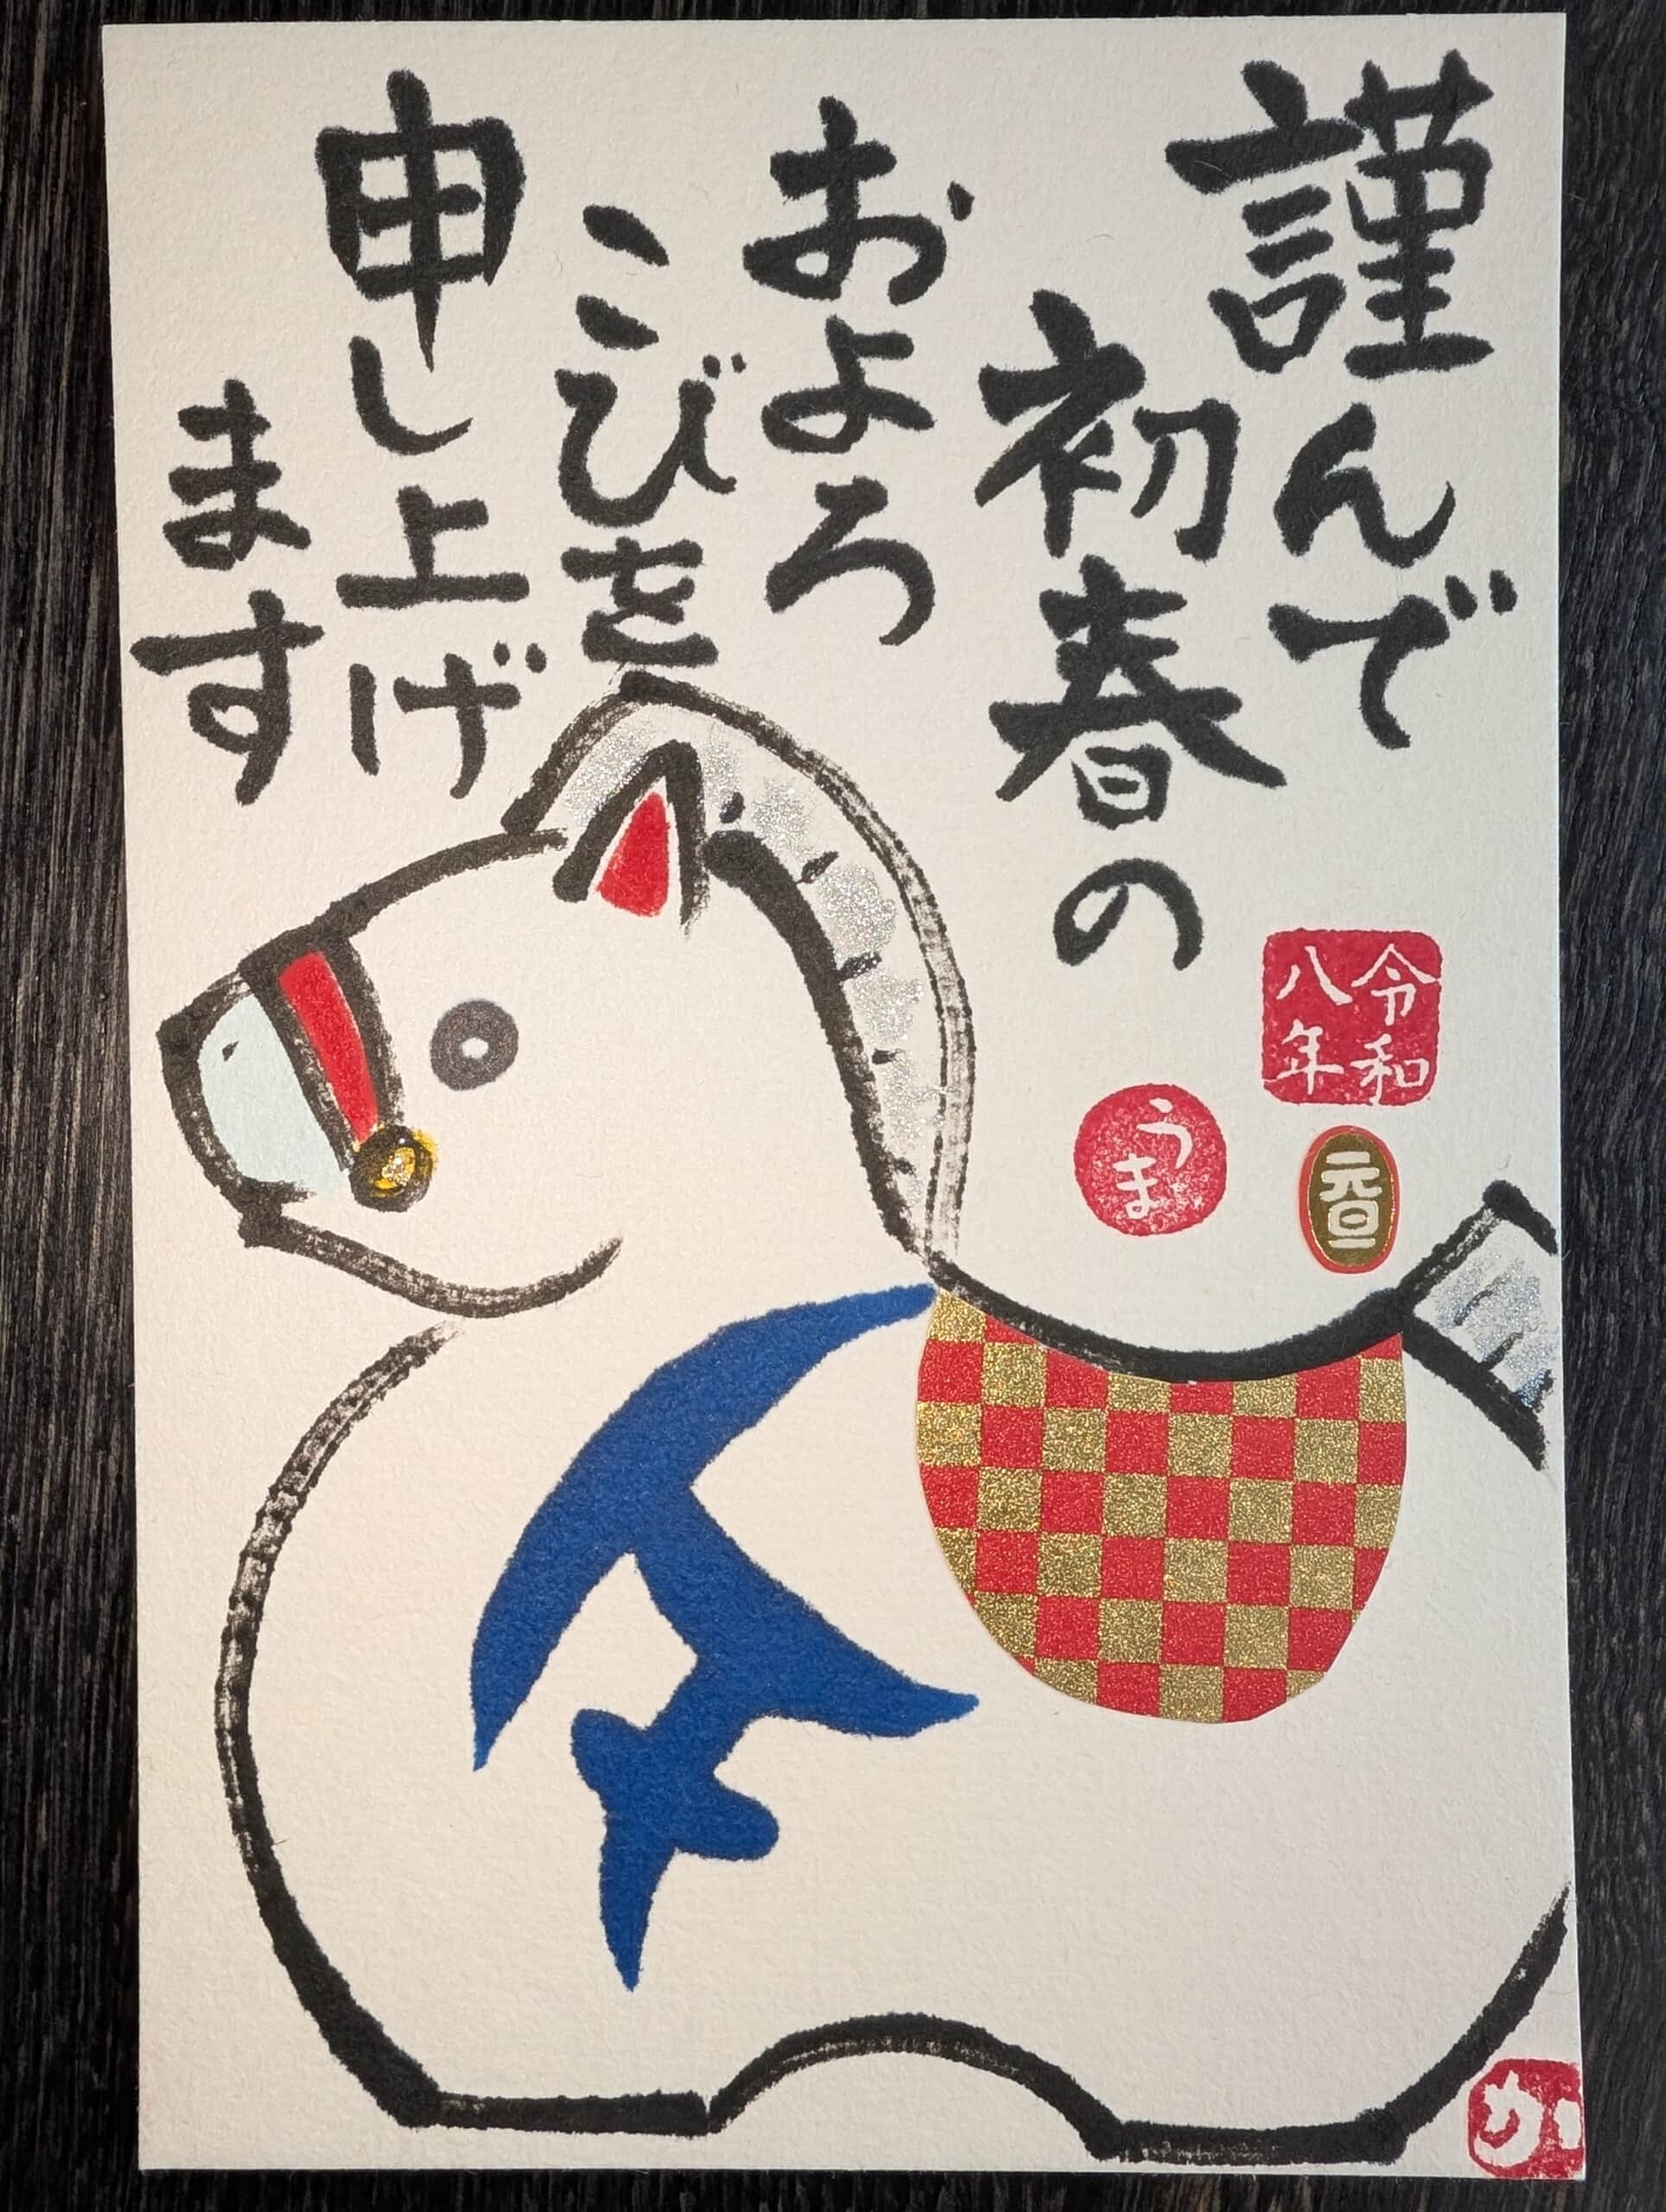 謹んで
初春の
およろ
こびを
申し上げ
ます
令和
八年
うま
元旦